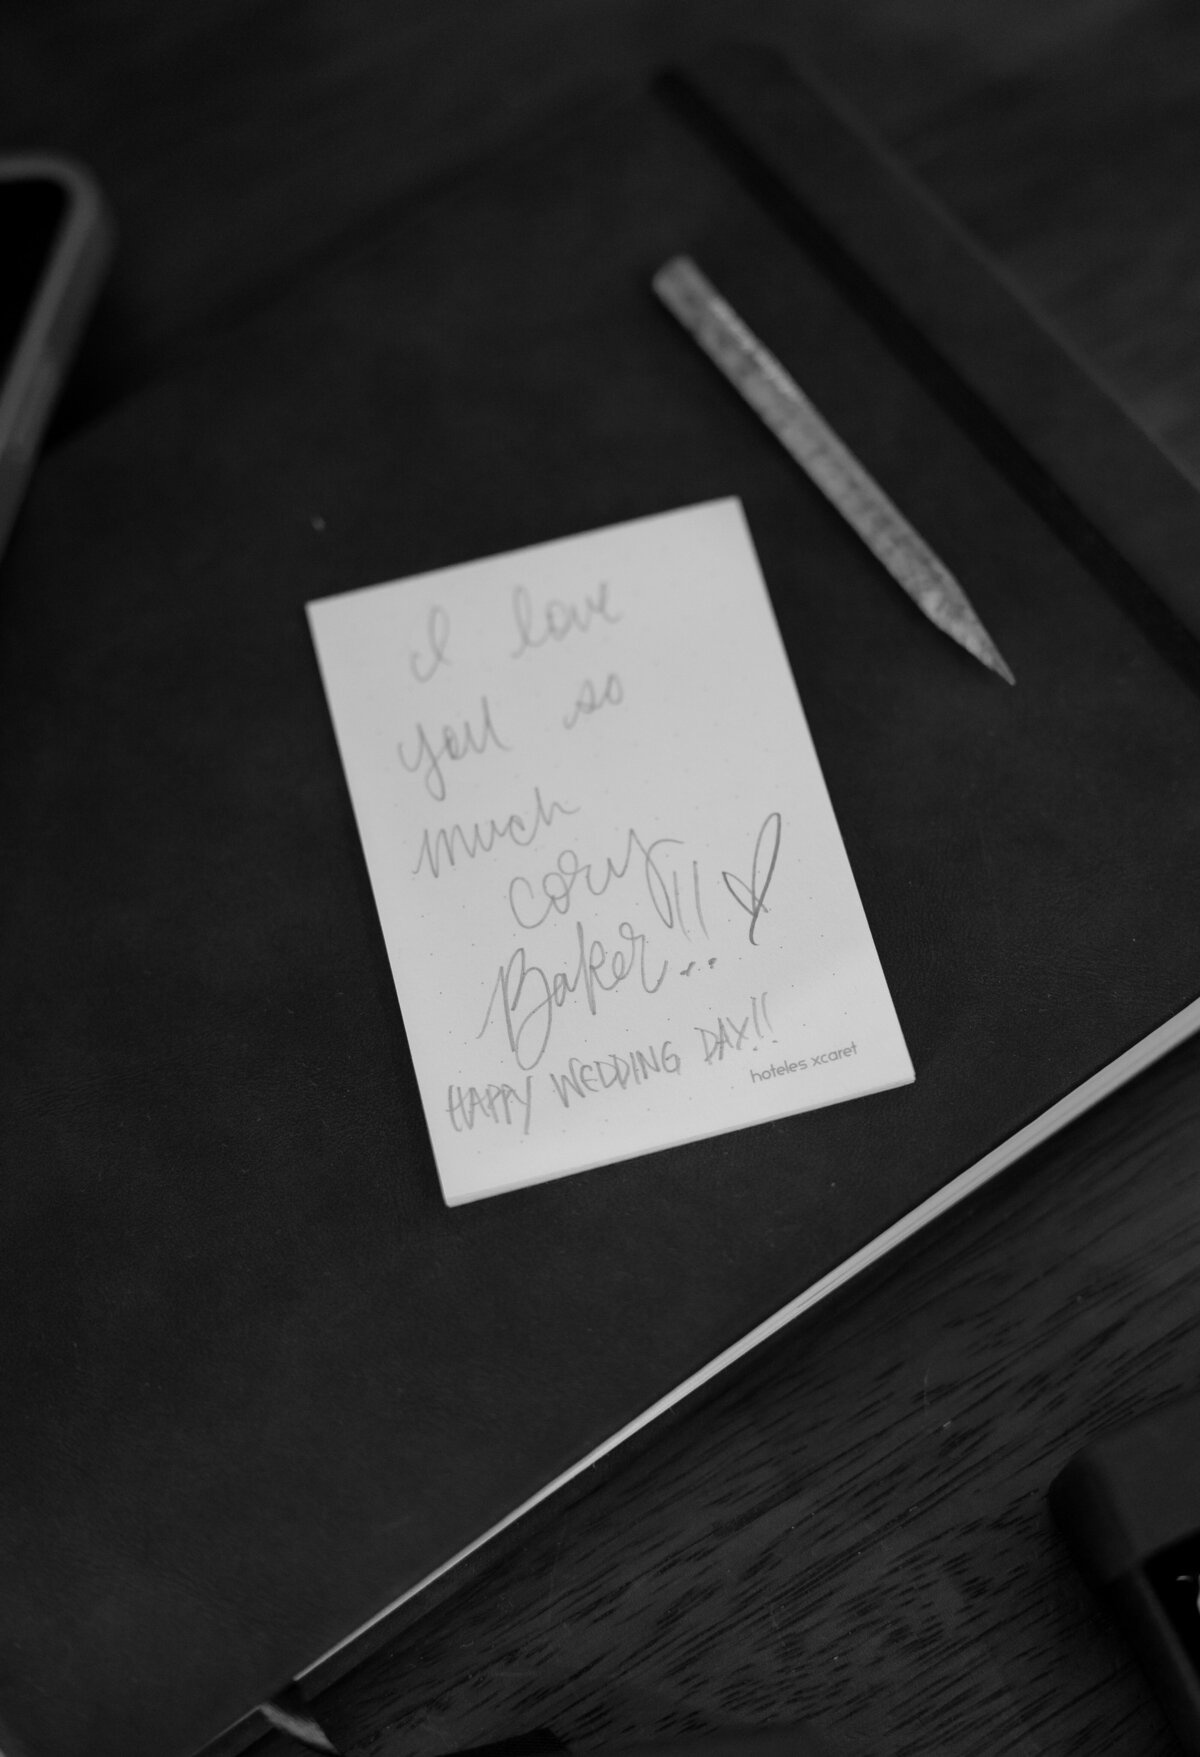 I love
you so
much
Cory
Baker!! ♡
HAPPY WEDDING DAY!!
hoteles xcaret